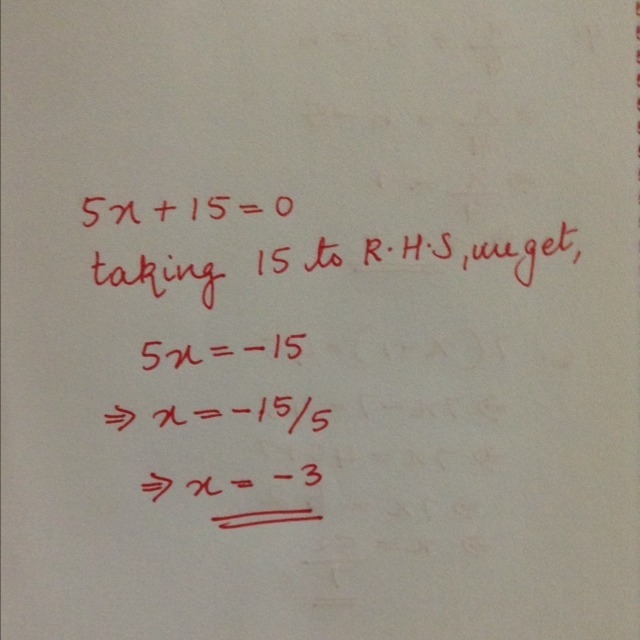 5x + 15 = 0
taking 15 to R.H.S, we get,
5x = -15
⇒ x = -15/5
⇒ x = -3